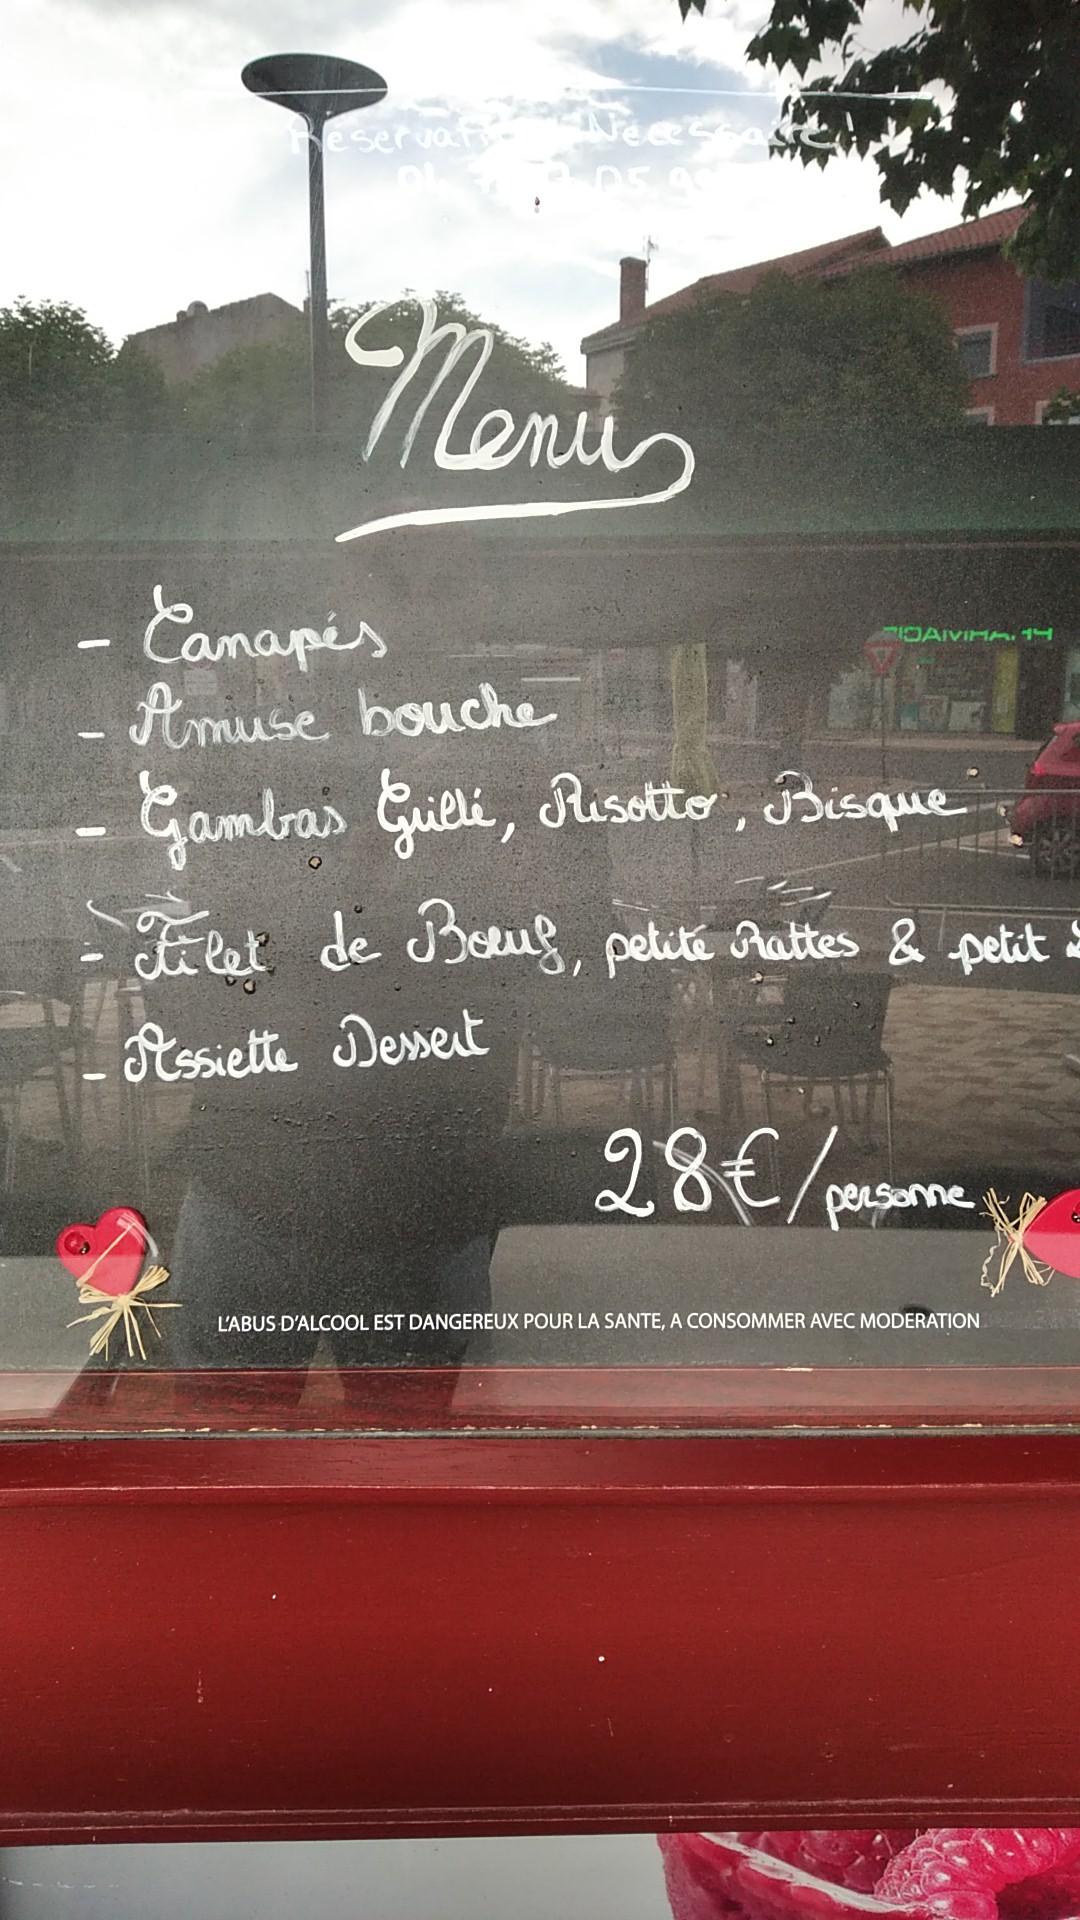 Réservation Necessaire !
Menu
- Canapés
- Amuse bouche
- Gambas Grillé, Risotto, Bisque
- Filet de Boeuf, petite Rattes & petit
- Assiette Dessert
28€/personne
L'ABUS D'ALCOOL EST DANGEREUX POUR LA SANTE, A CONSOMMER AVEC MODERATION